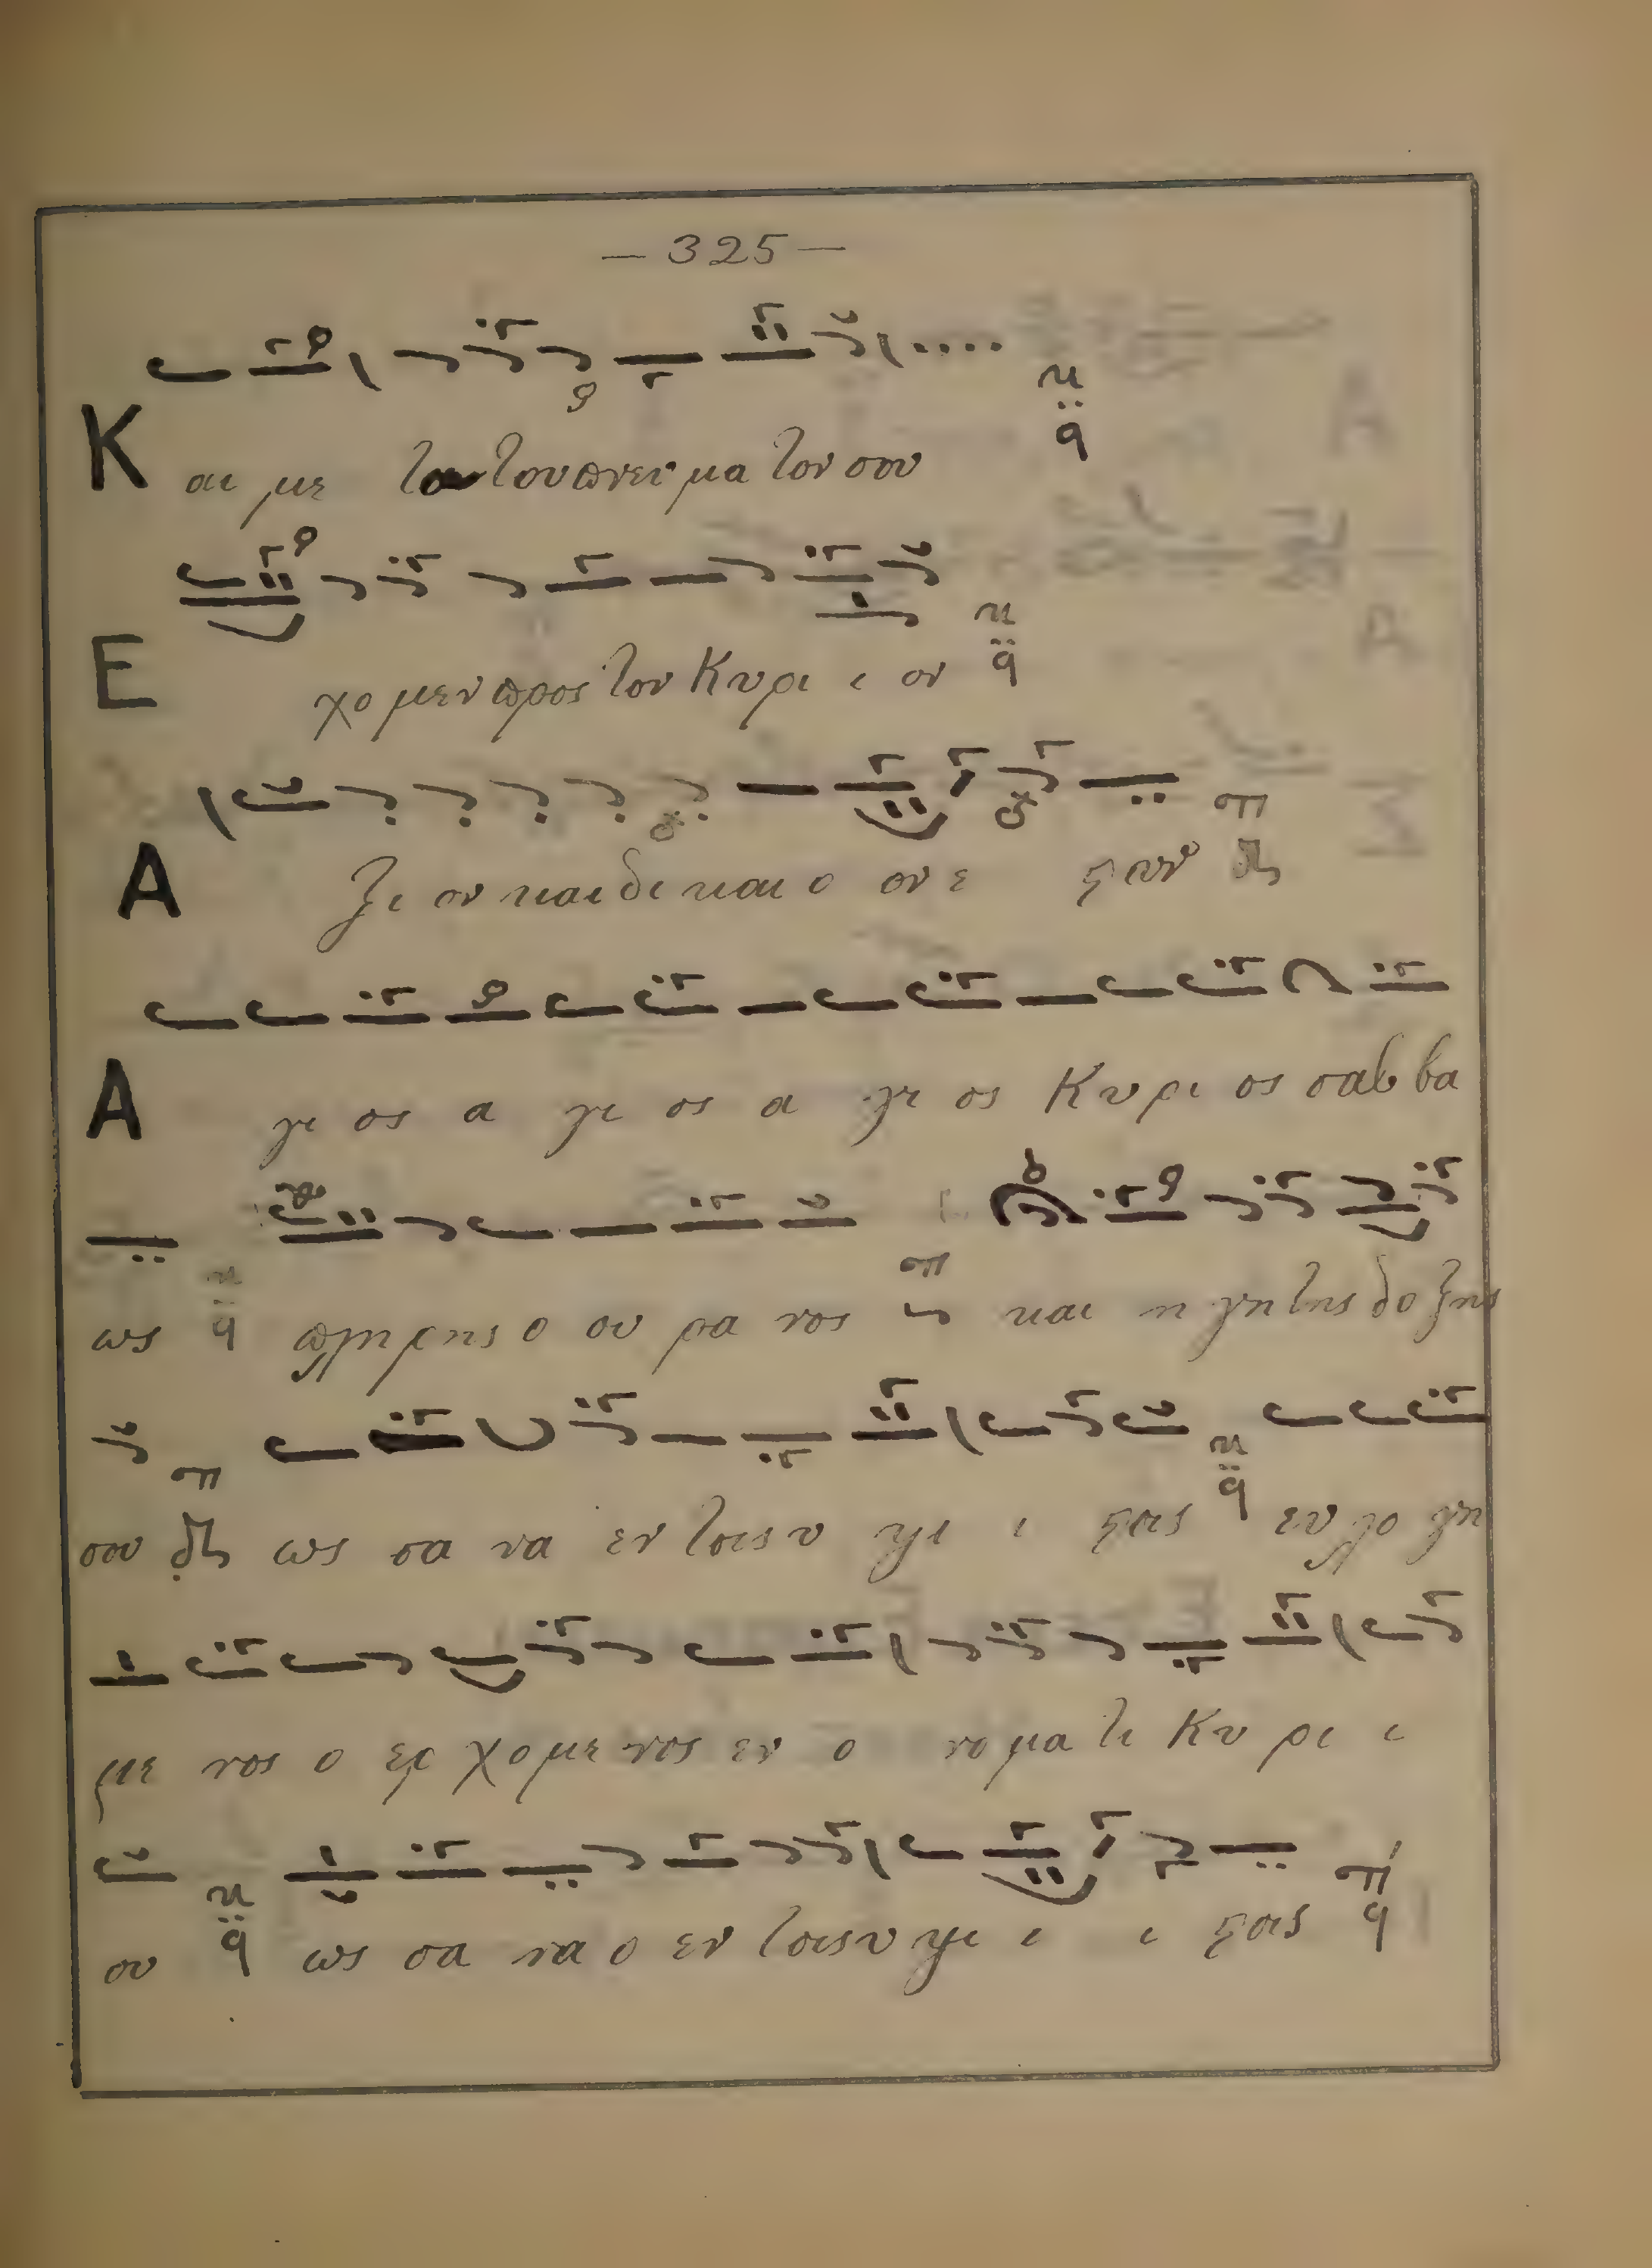 — 325 —
Και με το του πνευ μα τον σου
Ε χο μεν προς τον Κυρι ι ον
Α ξι ον και δι και ο ον ε στιν
Α γι ος α γι ος α γι ος Κυ ρι ος σαβ βα
ως πλη ρης ο ου ρα νος και η γη της δο ξης
σου ως σα να εν τοις υ ψι ι στοις ευ λο γη
με νος ο ερ χο με νος εν ο νο μα τι Κυ ρι ι
ου ως σα να ο εν τοις υ ψι ι ι στοις